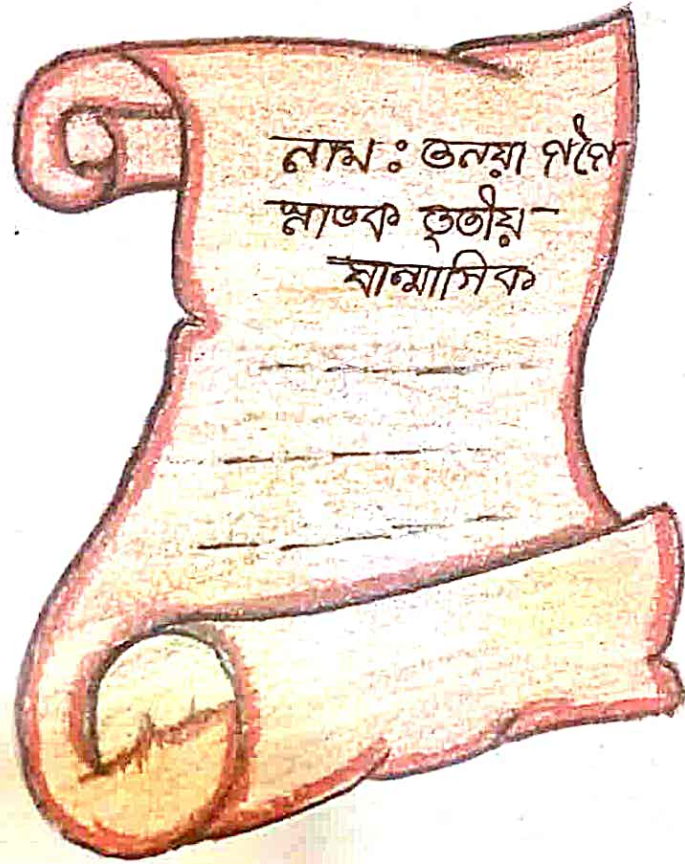 নাম : তনয়া গগৈ
স্নাতক তৃতীয়
ষান্মাসিক